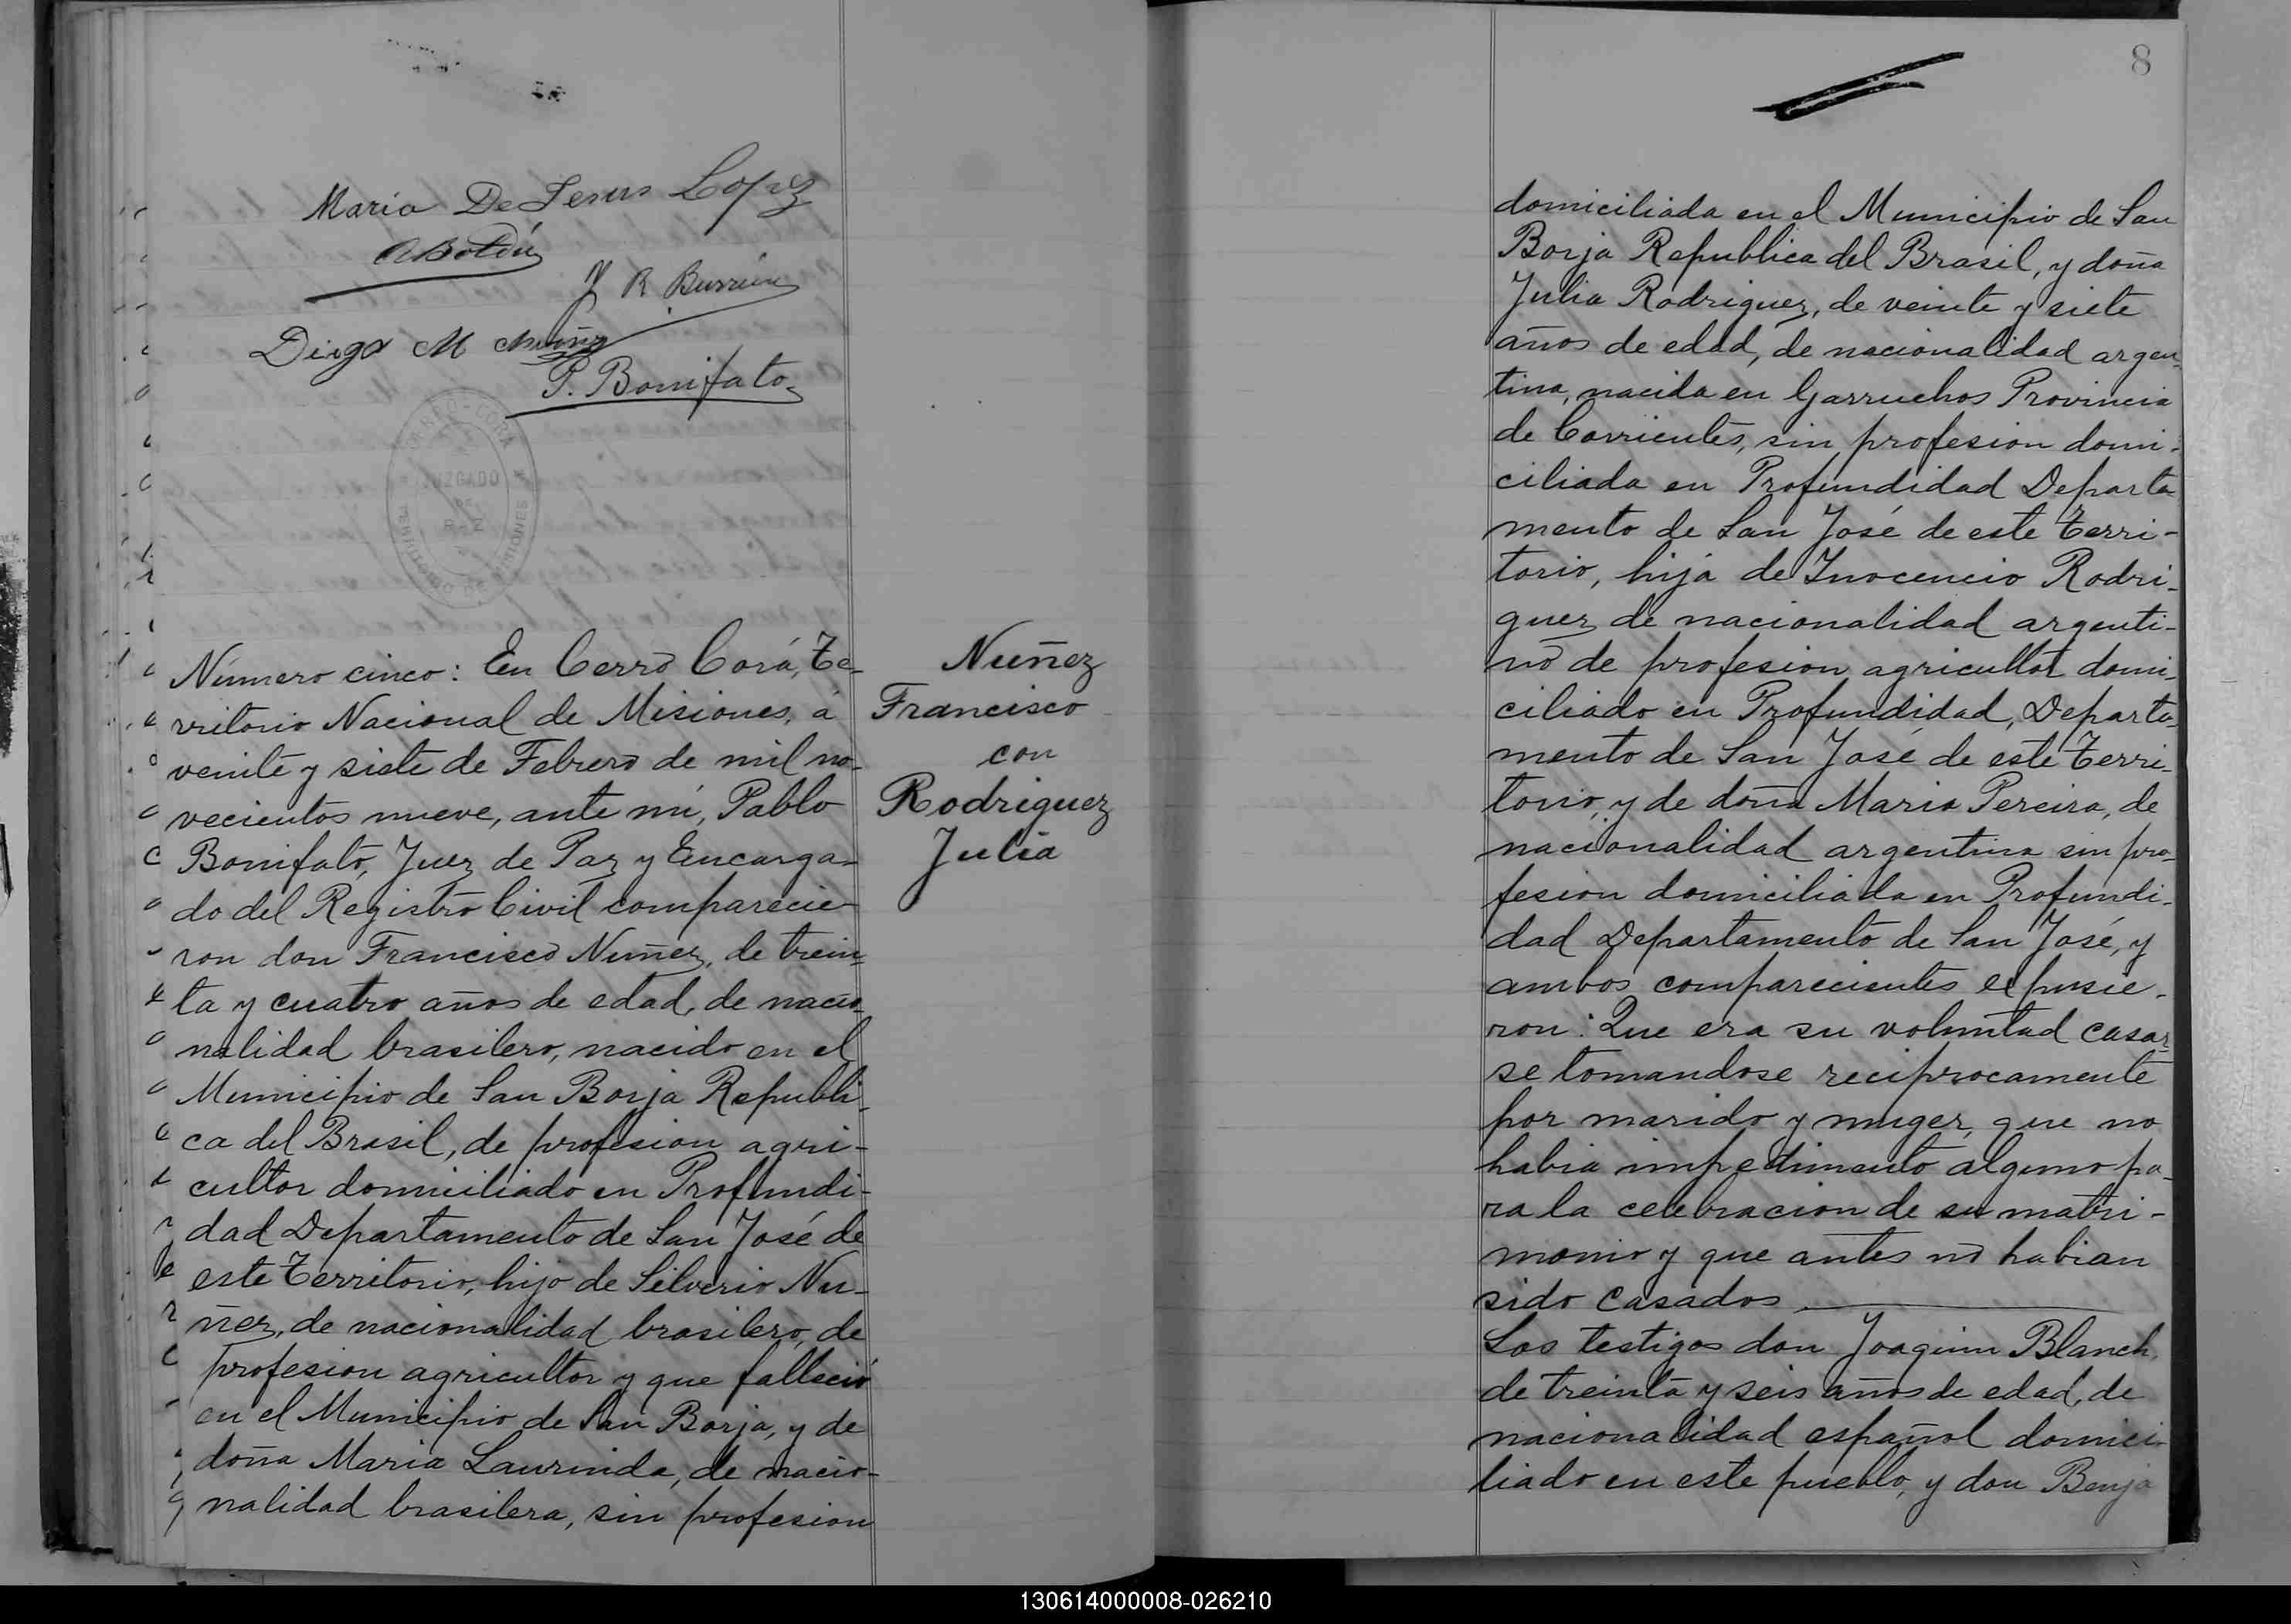 Maria De Jesus Lopez
P. Bonifato
CERRO-CORÁ
JUZGADO
DE
TERRITORIO DE MISIONES
Número cinco: En Cerro Corá, Te-
rritorio Nacional de Misiones, á
veinte y siete de Febrero de mil no-
vecientos nueve, ante mi, Pablo
Bonifato, Juez de Paz y Encarga-
do del Registro Civil comparecie-
ron don Francisco Nuñez, de trein-
ta y cuatro años de edad, de nacio-
nalidad brasilero, nacido en el
Municipio de San Borja Republi-
ca del Brasil, de profesion agri-
cultor domiciliado en Profundi-
dad Departamento de San José de
este Territorio, hijo de Silverio Nu-
ñez, de nacionalidad brasilero, de
profesion agricultor y que falleció
en el Municipio de San Borja, y de
doña Maria Laurinda, de nacio-
nalidad brasilera, sin profesion
Nuñez
Francisco
con
Rodriguez
Julia
8
domiciliada en el Municipio de San
Borja Republica del Brasil, y doña
Julia Rodriguez, de veinte y siete
años de edad, de nacionalidad argen-
tina, nacida en Garruchos Provincia
de Corrientes, sin profesion domi-
ciliada en Profundidad Departa-
mento de San José de este Terri-
torio, hija de Inocencio Rodri-
guez de nacionalidad argenti-
no de profesion agricultor domi-
ciliado en Profundidad, Departa-
mento de San José de este Terri-
torio, y de doña Maria Pereira, de
nacionalidad argentina sin pro-
fesion domiciliada en Profundi-
dad Departamento de San José, y
ambos comparecientes expusie-
ron: Que era su voluntad casar-
se tomandose reciprocamente
por marido y muger, que no
habia impedimento alguno pa-
ra la celebracion de su matri-
monio y que antes no habian
sido casados
Los testigos don Joaquin Blanch,
de treinta y seis años de edad, de
nacionalidad español domici-
liado en este pueblo, y don Benja
130614000008-026210